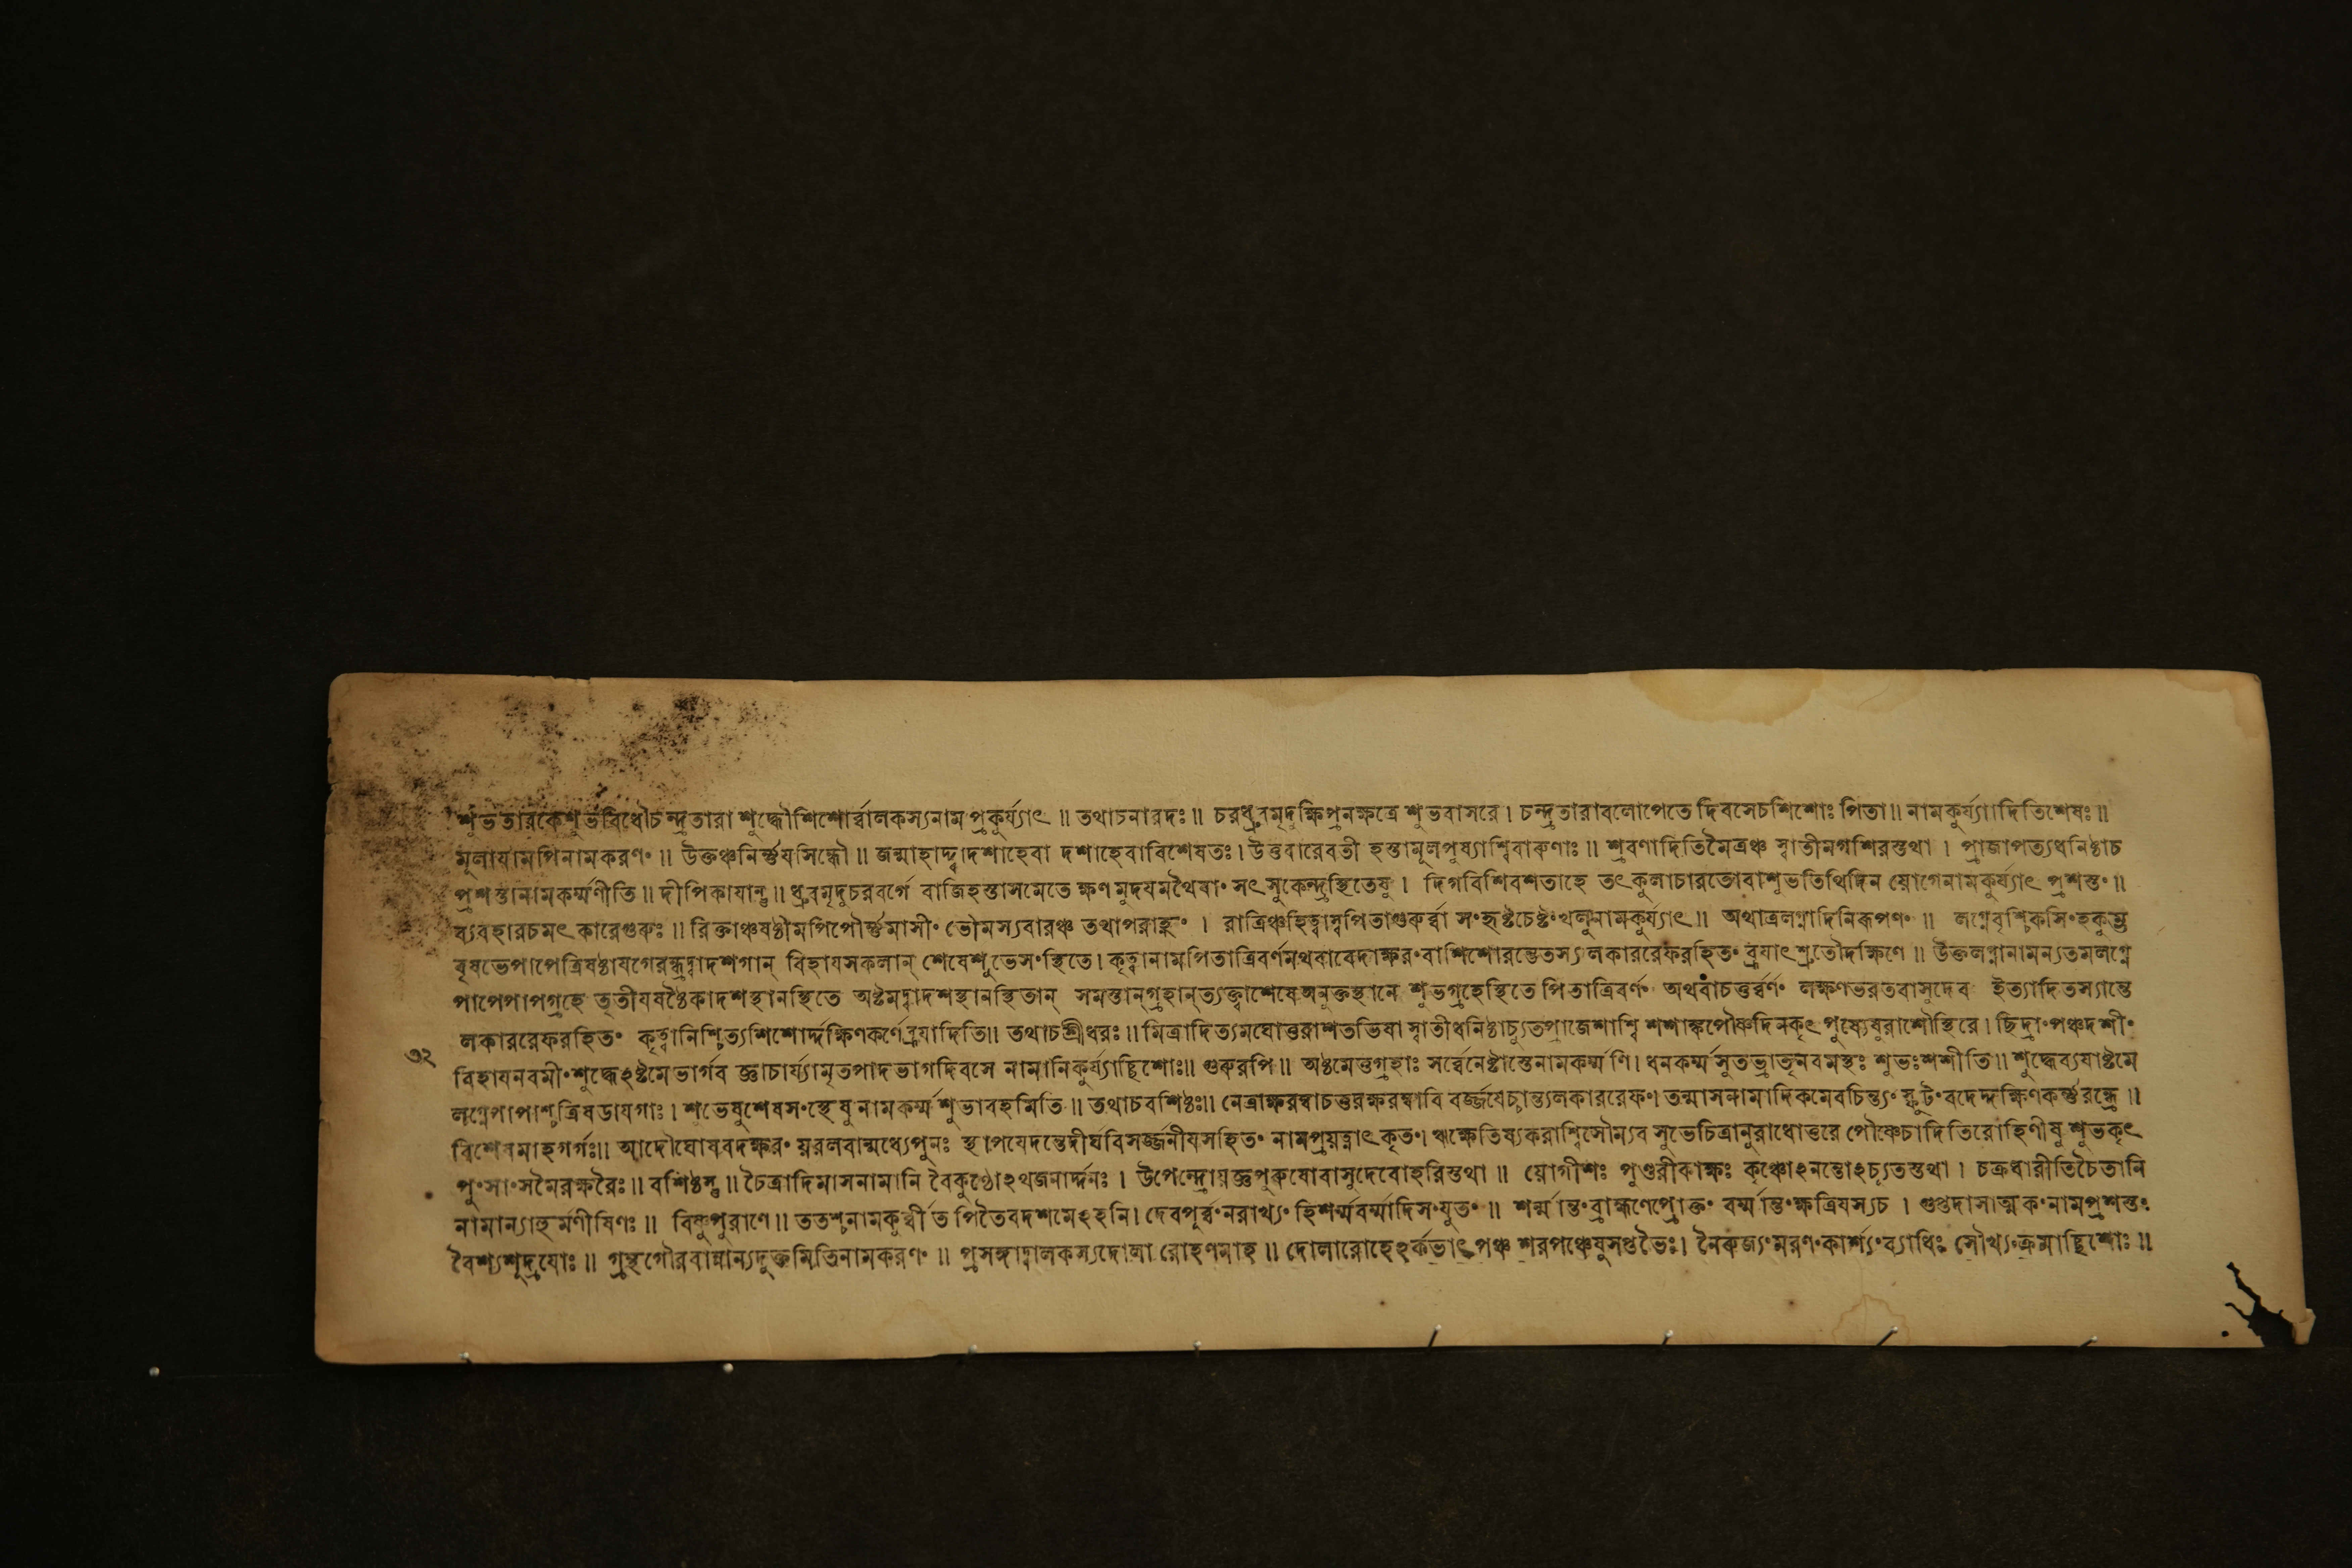 শুভতারকেশুভবিধৌচন্দ্রতারা শুদ্ধৌশিশোর্ব্বালকস্যনাম প্রকুর্য্যাৎ ॥ তথাচনারদঃ ॥ চরধ্রুবমৃদুক্ষিপ্রনক্ষত্রে শুভবাসরে। চন্দ্রতারাবলোপেতে দিবসেচশিশোঃ পিতা॥ নামকুর্য্যাাদিতিশেষঃ॥
মূলাযামপিনামকরণং ॥ উক্তঞ্চনির্ণ্ণযসিন্ধৌ ॥ জন্মাহাদ্দ্বাদশাহেবা দশাহেবাবিশেষতঃ। উত্তরারেবতী হস্তামূলপুষ্যাশ্বিবারুণাঃ ॥ শ্রবণাদিতিমৈত্রঞ্চ স্বাতীমৃগশিরস্তথা । প্রাজাপত্যধনিষ্ঠাচ
প্রশস্তানামকর্ম্মণীতি॥ দীপিকাযান্তু॥ ধ্রুবমৃদুচরবর্গে বাজিহস্তাসমেতে ক্ষণমুদযমথৈষাং সৎসুকেন্দ্রস্থিতেষু। দিগবিশিবশতাহে তৎকুলাচারতোবাশুভতিথিদিন য়োগেনামকুর্য্যাৎ প্রশস্তং॥
ব্যবহারচমৎকারেগুরুঃ॥ রিক্তাঞ্চষষ্ঠীমপিপৌর্ণ্ণমাসীং ভৌমস্যবারঞ্চ তথাপরাহ্ণং । রাত্রিঞ্চহিত্বাস্বপিতাগুরুর্ব্বা সংহৃষ্টচেষ্টংখলুনামকুর্য্যাৎ॥ অথাত্রলগ্নাদিনিরূপণং ॥ লগ্নেবৃশ্চিকসিংহকুম্ভ
বৃষভেপাপেত্রিষষ্ঠাযগেরন্ধ্রদ্বাদশগান্ বিহাযসকলান্ শেষেশুভেসংস্থিতে। কৃত্বানামপিতাত্রিবর্ণমথবাবেদাক্ষরংবাশিশোরন্তেতস্যলকাররেফরহিতং ব্রূযাৎশ্রুতৌদক্ষিণে॥ উক্তলগ্নানামন্যতমলগ্নে
পাপেপাপগ্রহে তৃতীযষষ্ঠৈকাদশস্থানস্থিতে অষ্টমদ্বাদশস্থানস্থিতান্ সমস্তান্‌গ্রহান্‌ত্যক্ত্বাশেষেঅনুক্তস্থানে শুভগ্রহেস্থিতে পিতাত্রিবর্ণং অথবাচতুর্ব্বর্ণং লক্ষণভরতবাসুদেব ইত্যাদিতস্যান্তে
লকাররেফরহিতং কৃত্বানিশ্চিত্যশিশোর্দ্দক্ষিণকর্ণেব্রূযাদিতি॥ তথাচশ্রীধরঃ॥ মিত্রাদিত্যমঘোত্তরাশতভিষা স্বাতীধনিষ্ঠাচ্যুতপ্রাজেশাশ্বি শশাঙ্কপৌষ্ণদিনকৃৎ পুষ্যেষুরাশৌস্থিরে। ছিদ্রাং পঞ্চদশীং
৩২
বিহাযনবমীংশুদ্ধেঽষ্টমেভার্গব জ্ঞাচার্য্যামৃতপাদভাগদিবসে নামানিকুর্য্যাচ্ছিশোঃ॥ গুরুরপি॥ অষ্টমেত্তগ্রহাঃ সর্ব্বেনেষ্টাস্তেনামকর্ম্মণি। ধনকর্ম্মসুতভ্রাতৃনবমস্থঃ শুভঃশশীতি॥ শুদ্ধেব্যযাষ্টমে
লগ্নেপাপাশ্চত্রিষডাযগাঃ। শুভেষুশেষসংস্থেষু নামকর্ম্মশুভাবহমিতি॥ তথাচবশিষ্ঠঃ॥ নেত্রাক্ষরম্বাচতুরক্ষরম্বাবি বর্জ্জযেচ্চান্ত্যলকাররেফং। তন্মাসনামাদিকমেবচিন্ত্যং স্ফুটংবদেদ্দক্ষিণকর্ণ্ণরন্ধ্রে॥
বিশেষমাহগর্গঃ॥ আদৌঘোষবদক্ষরং য়রলবান্মধ্যেপুনঃ স্থাপযেদন্তেদীর্ঘবিসর্জ্জনীযসহিতং নামপ্রয়ত্নাৎকৃতং। ঋক্ষেতিষ্যকরাশ্বিসৌম্যব সুভেচিত্রানুরাধোত্তরে পৌষ্ণেচাদিতিরোহিণীষু শুভকৃৎ
পুংসাংসমৈরক্ষরৈঃ॥ বশিষ্ঠস্তু॥ চৈত্রাদিমাসনামানি বৈকুণ্ঠোঽথজনার্দ্দনঃ । উপেন্দ্রোয়জ্ঞপুরুষোবাসুদেবোহরিস্তথা ॥ য়োগীশঃ পুণ্ডরীকাক্ষঃ কৃষ্ণোঽনন্তোঽচ্যুতস্তথা । চক্রধারীতিচৈতানি
নামান্যাহুর্মণীষিণঃ॥ বিষ্ণুপুরাণে॥ ততশ্চনামকুর্ব্বীত পিতৈবদশমেঽহনি। দেবপূর্ব্বংনরাখ্যং হিশর্ম্মবর্ম্মাদিসংযুতং॥ শর্ম্মান্তংব্রাহ্মণেপ্রোক্তং বর্ম্মান্তংক্ষত্রিযস্যচ । গুপ্তদাসাত্মকংনামপ্রশস্তং
বৈশ্যশূদ্রযোঃ॥ গ্রন্থগৌরবান্নান্যদুক্তমিতিনামকরণং ॥ প্রসঙ্গাদ্বালকস্যদোলা রোহণমাহ॥ দোলারোহেঽর্কভাৎপঞ্চ শরপঞ্চেষুসপ্তভৈঃ। নৈরুজ্যংমরণংকার্শ্যংব্যাধিঃ সৌখ্যংক্রমাচ্ছিশোঃ॥